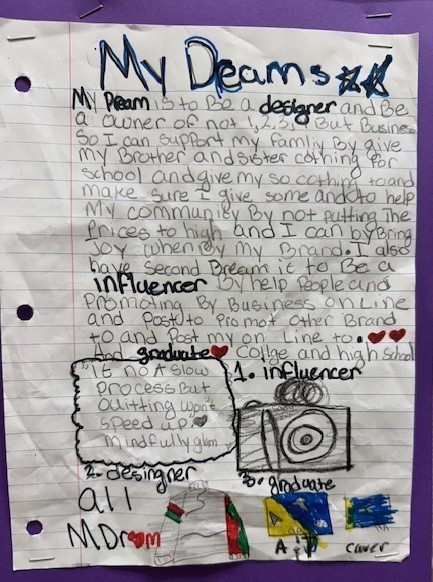 My Deams
My Dream is to Be a designer and Be
a owner of not 1,2,3,4 But Business
So I can support my famliy By give
my Brother and sister cothing for
school and give my so cothing to and
make sure I give some and to help
My community By not putting The
Prices to high and I can by Bring
Joy when by my Brand. I also
have second Dream it to Be a
influencer By help People and
Promoting By Business on Line
and Post to Promot other Brand
to and Post my on Line to.
And graduate Collge and high school
"it no A slow
Process But
Quitting won't
speed up.
mindfully glam
1. influencer
2. desingner
3. graduate
all
M Dream
A it
Cauer